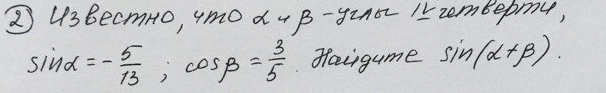 ② Известно, что α и β - углы IV четверти,
sinα = - 5/13 ; cosβ = 3/5. Найдите sin(α+β).